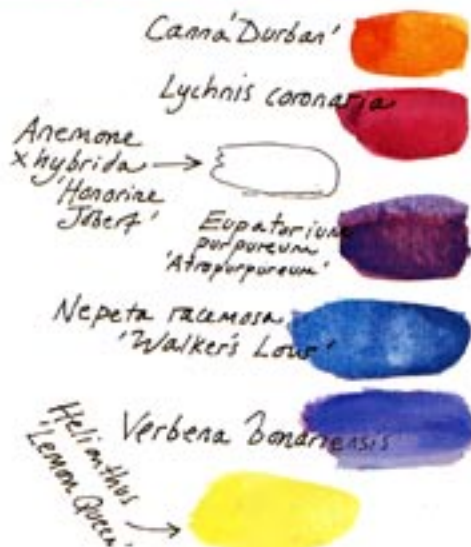 Canna 'Durban'
Lychnis coronaria
Anemone
x hybrida
'Honorine
Jobert'
Eupatorium
purpureum
'Atropurpureum'
Nepeta racemosa
'Walker's Low'
Verbena bonariensis
Helianthus
'Lemon Queen'